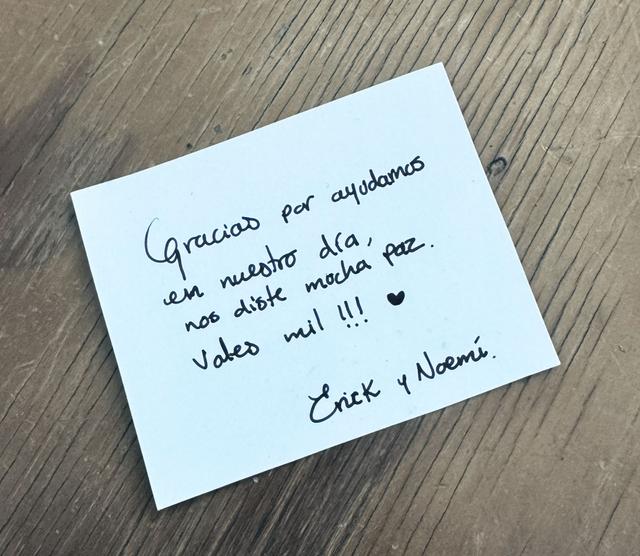 Gracias por ayudarnos
en nuestro día,
nos diste mucha paz.
Vales mil !!! ♥
Erick y Noemí.